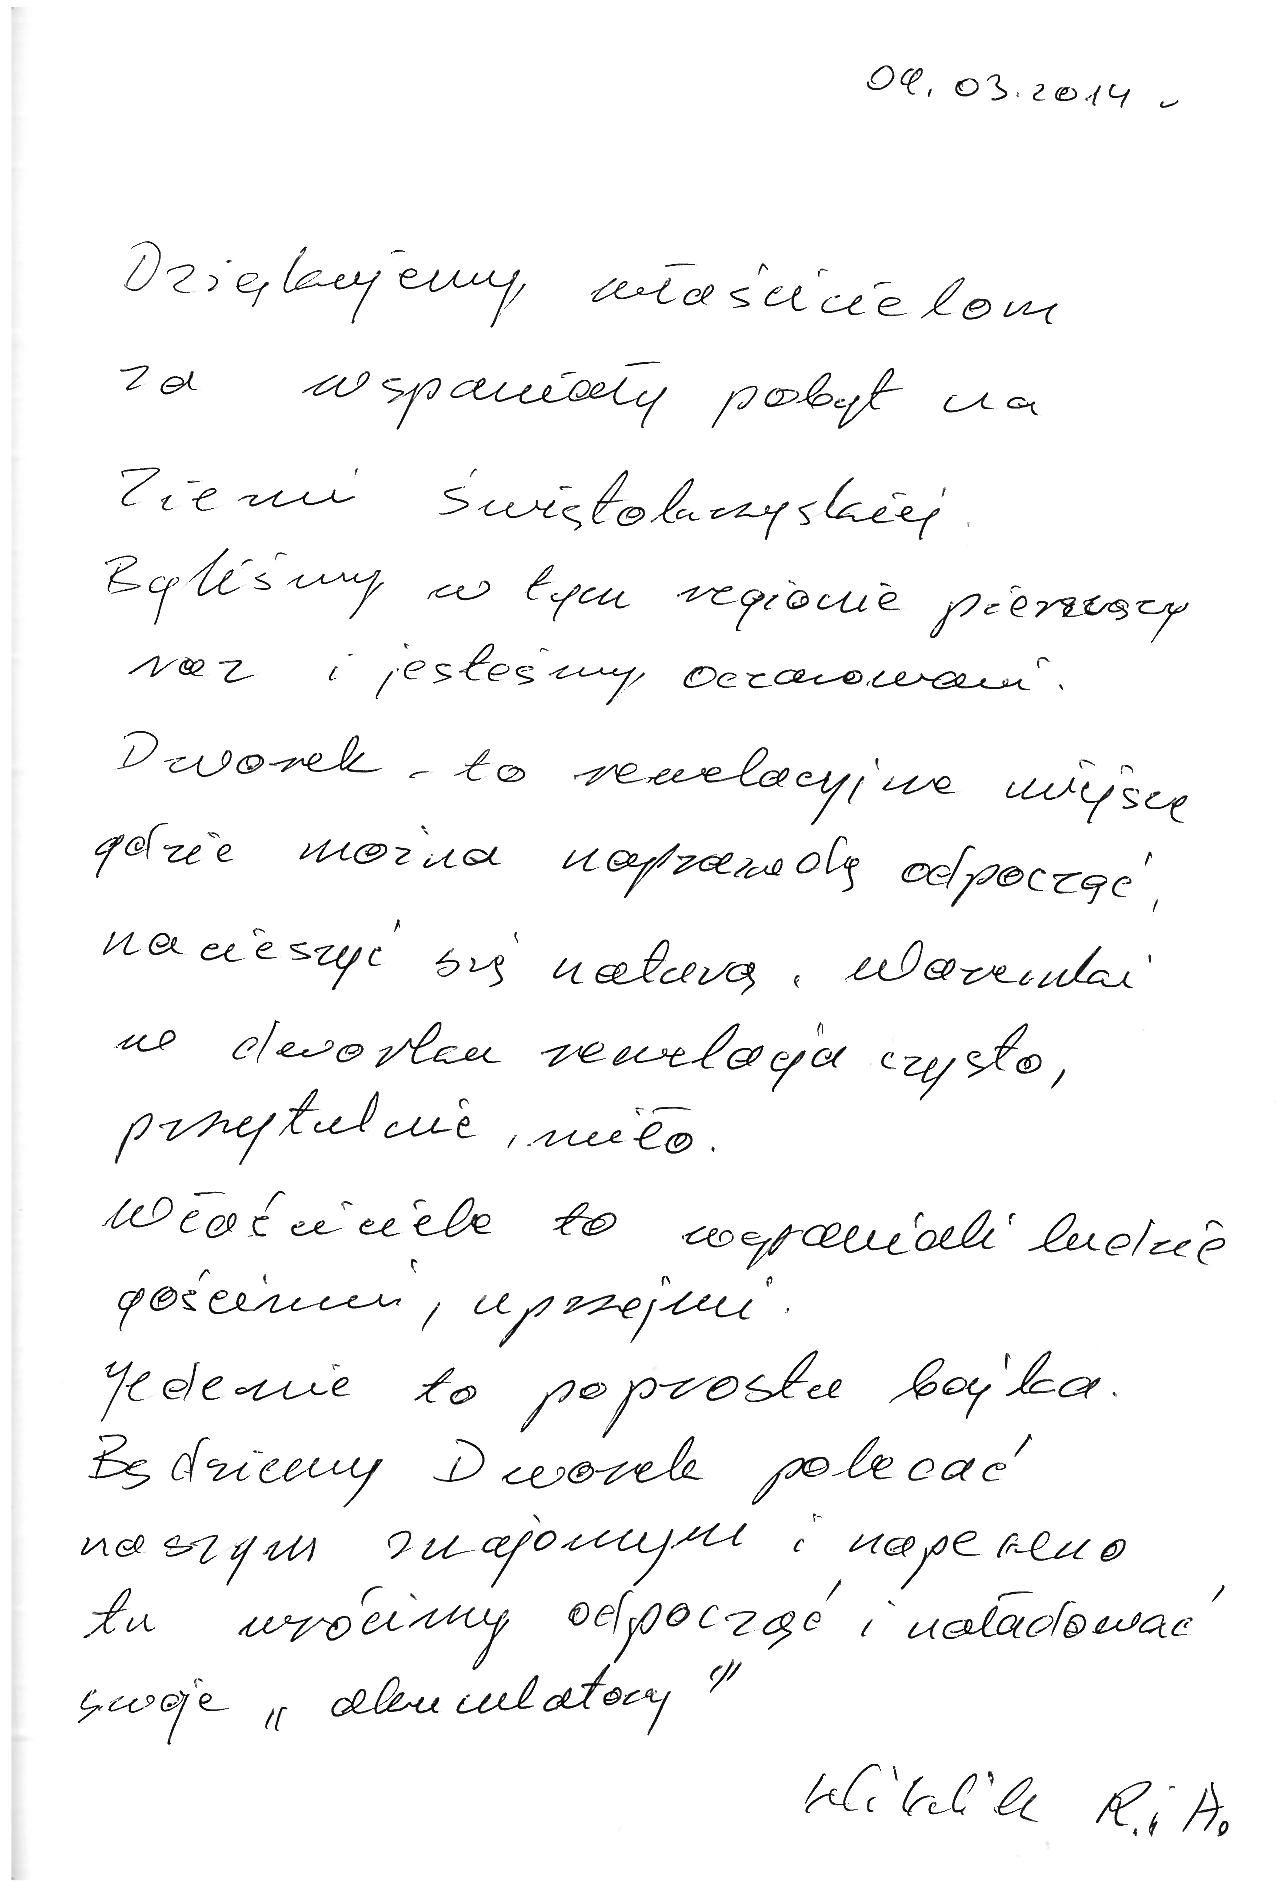 09.03.2014
Dziękujemy właścicielom
za wspaniały pobyt na
Ziemi Świętokrzyskiej.
Byliśmy w tym regionie pierwszy
raz i jesteśmy oczarowani.
Dworek - to rewelacyjne miejsce
gdzie można naprawdę odpocząć,
nacieszyć się naturą. Warunki
w dworku rewelacja czysto,
przytulnie, miło.
Właściciele to wspaniali ludzie
gościnni, uprzejmi.
Jedzenie to poprostu bajka.
Będziemy Dworek polecać
naszym znajomym i napewno
tu wrócimy odpocząć i naładować
swoje „akumulatory"
R. i A.